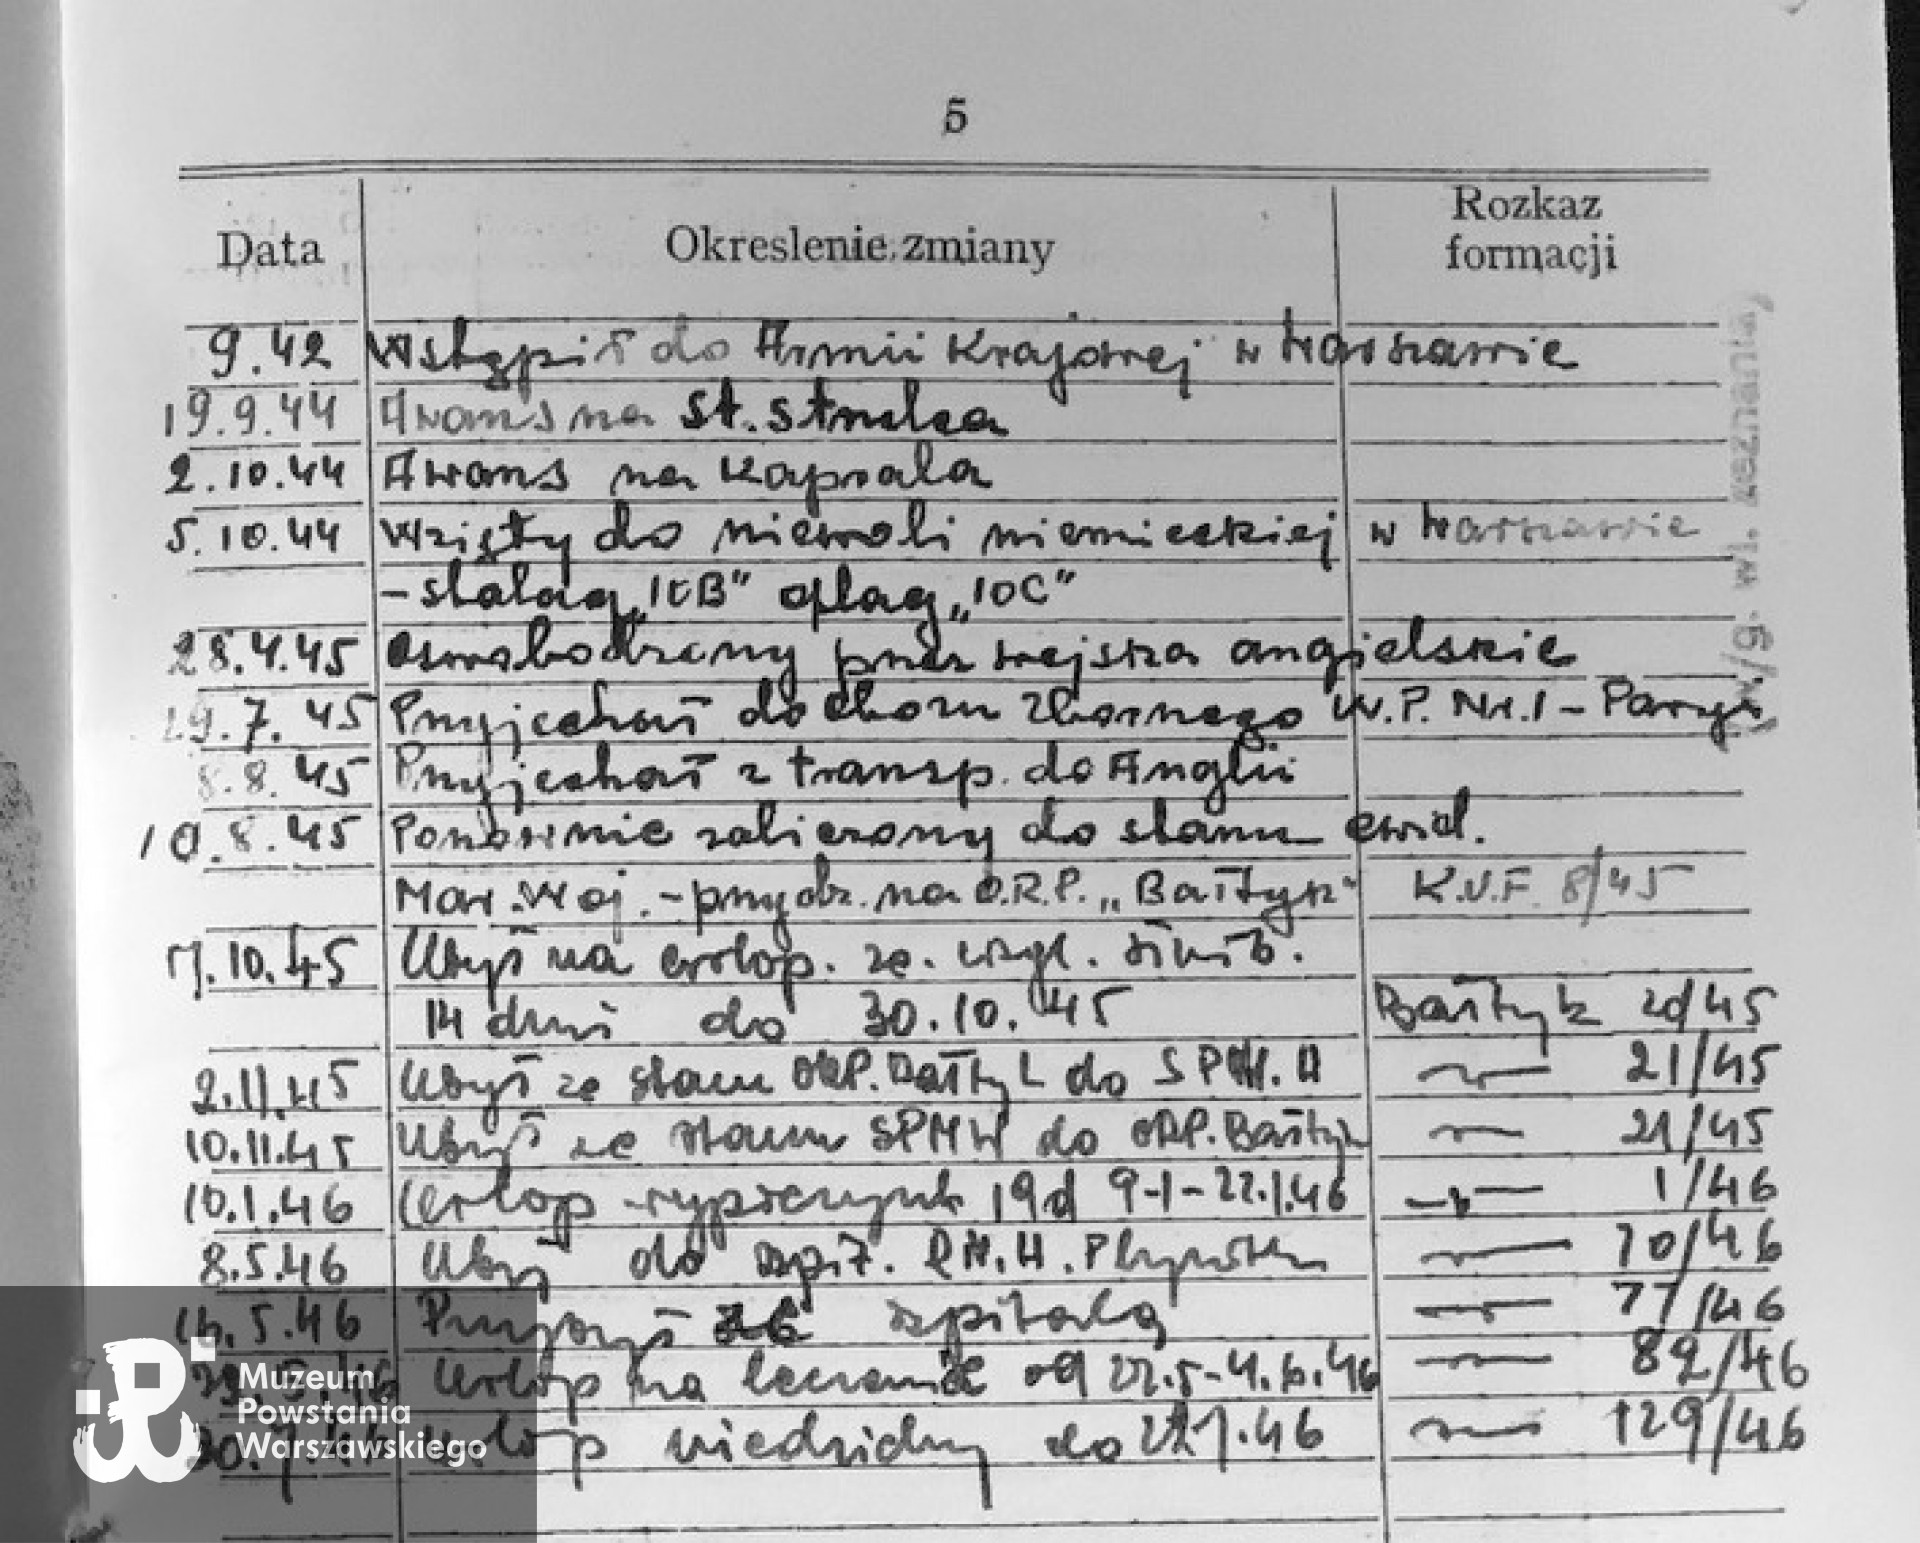 5
Data Okreslenie zmiany Rozkaz formacji
9.42 Wstąpił do Armii Krajowej w Warszawie
19.9.44 Awans na St. Strzelca
2.10.44 Awans na Kaprala
5.10.44 Wzięty do niewoli niemieckiej w Warszawie
- stalag " B" oflag „10C"
28.4.45 Oswobodzony przez wojska angielskie
29.7.45 Przyjechał do obozu zbornego W.P. Nr.1 - Paryż
8.8.45 Przyjechał z transp. do Anglii
10.8.45 Ponownie zaliczony do stanu ewid.
Mar. Woj. - przydz. na O.R.P. „Bałtyk" K.U.F. 8/45
17.10.45 Ubył na urlop. ze. wzgl. służb.
14 dni do 30.10.45 Bałtyk 20/45
2.11.45 Ubył ze stanu ORP. Bałtyk do SPM.W 21/45
10.11.45 Ubył ze stanu SPMW do ORP. Bałtyk 21/45
10.1.46 Urlop wypoczynk 19d 9-1-22.1.46 1/46
8.5.46 Ubył do szpit. R.N.H. Plymouth 70/46
16.5.46 Przybył ze szpitala 77/46
29.5.46 Urlop na leczenie od 22.5-4.6.46 82/46
30.7.46 urlop niedzielny do 46 129/46
w/g. wł. zeznania
Muzeum
Powstania
Warszawskiego